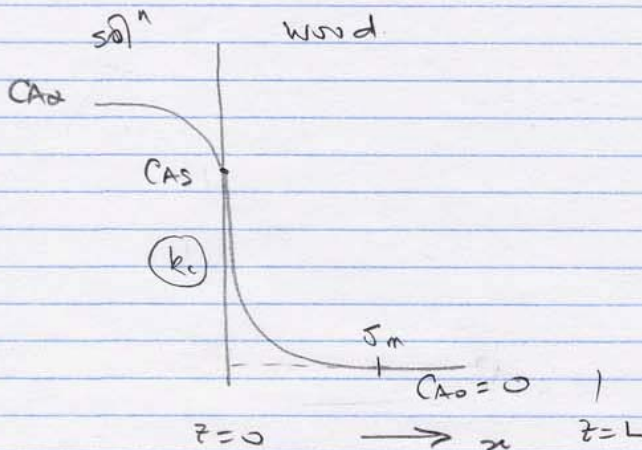 solⁿ wood
CA∞
CAS
kc
δm
CA0 = 0
z=0 → x z=L